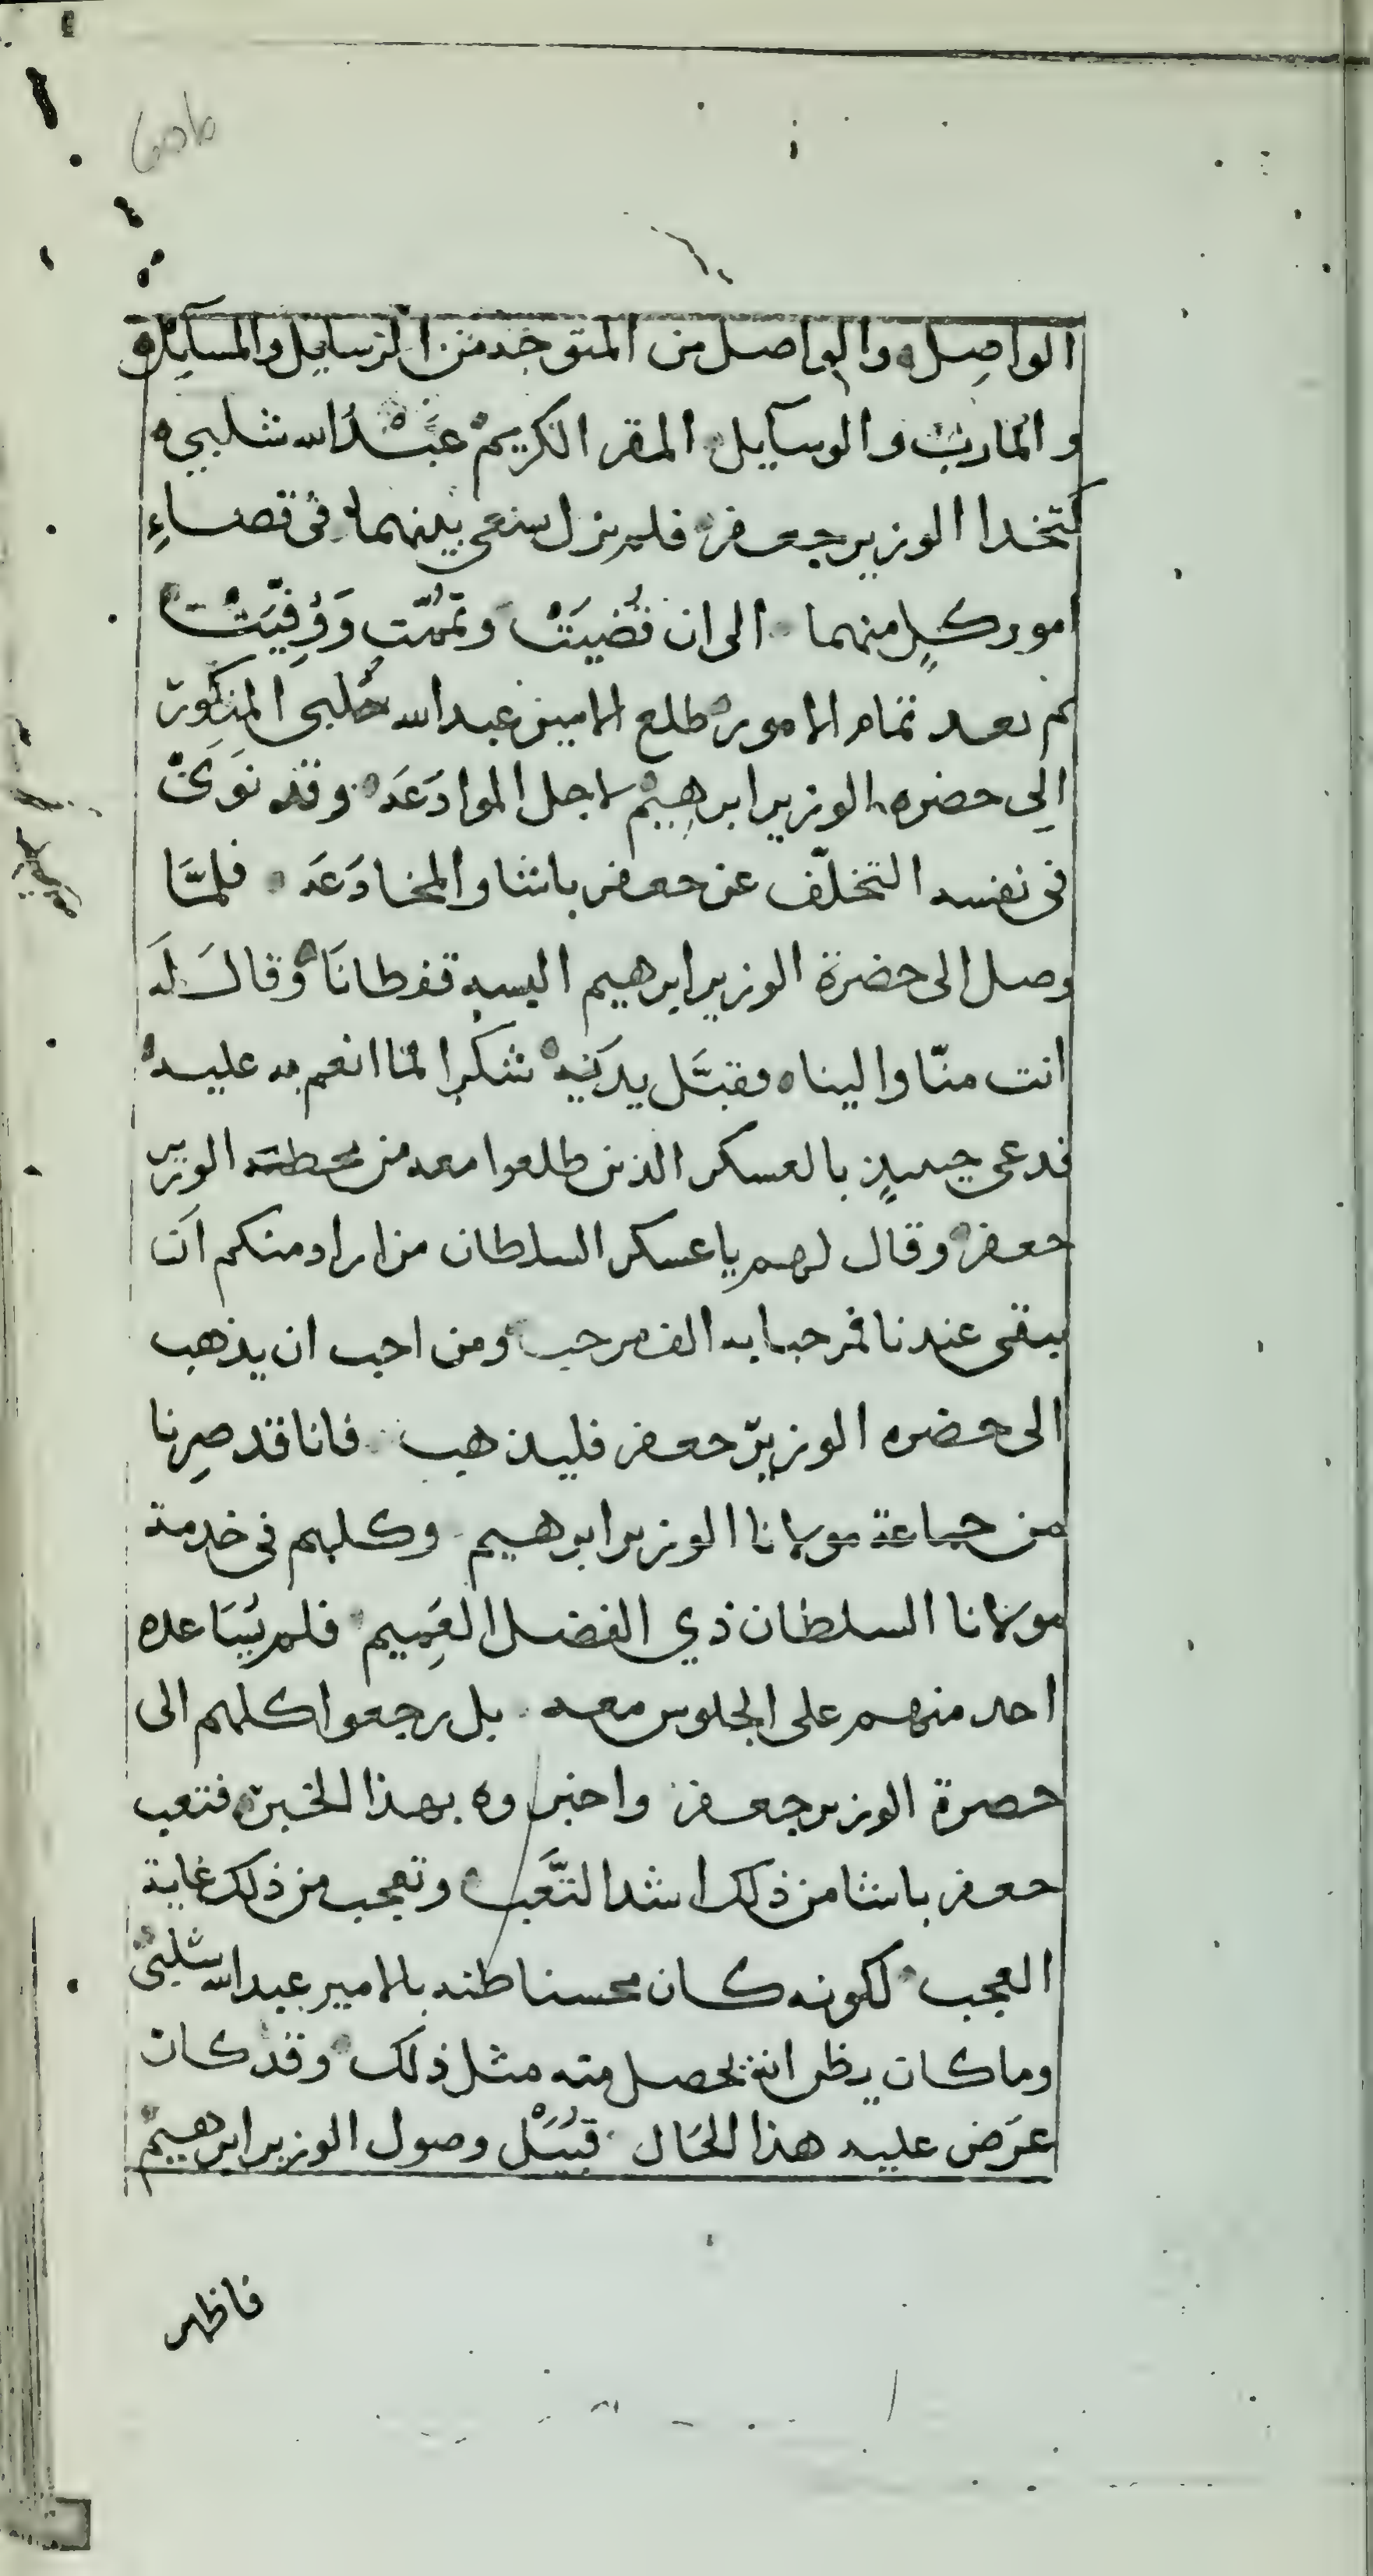 الواصل والواصل من المتوجه من الرسايل والمسايل
والمارب والوسآيل المقر الكريم عبد الله شلبي
كتخدا الوزير جعفر فلم يزل يسعى بينهما فى قصاءِ
امور كلٍ منهما الى ان قُضيَتْ وتمّت وَوُفِيَتْ
ثم بعد تمام الامور طلع الامير عبدالله جلبى المذكور
الِى حضره الوزير ابرهيم لاجل الموادَعَه وقد نَوَىٰ
فى نفسه التخلّف عن جعفر باشا والمخادَعَه فلمَّا
وصل الى حضرة الوزير ابرهيم البسه قفطانَا وقال لَه
انت منّا والينا فقبَّل يدَيْه شكرا لما انعم به عليه
فدعى حينيذٍ بالعسكر الذين طلعوا معه من محطة الوزير
جعفر وقال لهم يا عسكر السلطان من اراد منكم ان
يبقى عندنا فمرحبا به الف مرحب ومن احب ان يذهب
الى حضره الوزير جعفر فليذهب فانا قد صِرنا
من جماعة مولانا الوزير ابرهيم وكلهم فى خدمة
مولانا السلطان ذي الفضل العَمِيم فلم يُسَاعده
احد منهم على الجلوس معه بل رجعوا كلهم الى
حصرة الوزير جعفر واخبروه بهذا الخبر فتعب
جعفر باشا من ذلك اشد التَّعب وتعجب من ذلك غاية
العجب لكونه كان محسنا ظنه بالامير عبدالله شلبى
وما كان يظن انه يحصل منه مثل ذلك وقد كان
عرَض عليه هذا الحَال قبَيْل وصول الوزير ابرهيم
فاظهر